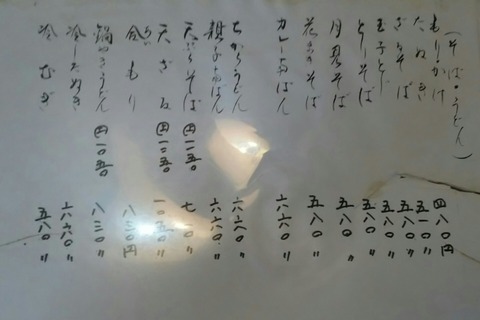 (そば・うどん)
もり・かけ 四八〇円
たぬき 五一〇〃
ざるそば 五八〇〃
玉子とじ 五八〇〃
とじそば 五八〇〃
月見そば 五八〇〃
花まきそば 五八〇〃
カレー南ばん 六六〇〃
ちからうどん 六六〇〃
親子南ばん 六六〇〃
天ぷらそば 七一〇〃
天ざる 一〇五〇〃
合もり 八三〇円
鍋やきうどん 八三〇〃
冷したぬき 六六〇〃
冷むぎ 五八〇〃